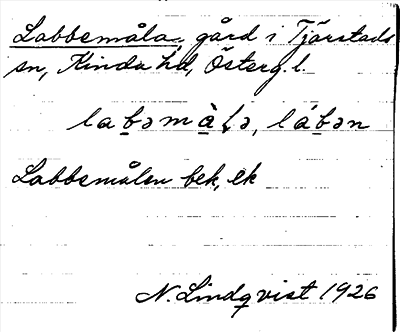 Labbemåla, gård i Tjärstads
sn, Kinda hd, Österg. l.
labəmàlə, lábən
Labbemålen bek, ek
N. Lindqvist 1926